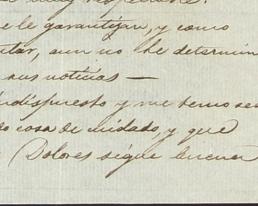 muy respetable.
le garantizan, y como
aun no he determin
sus noticias —
indispuesto y me temo sea
cosa de cuidado, y que
Dolores sigue buena